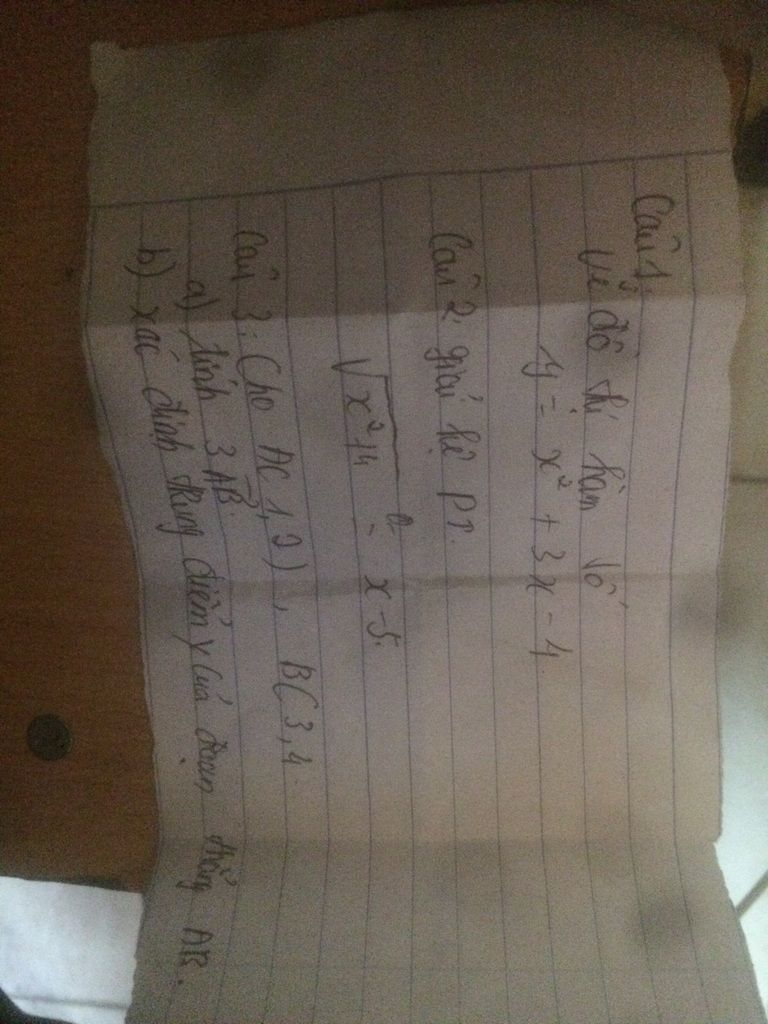 Câu 1:
Vẽ đồ thị hàm số
y = x² + 3x - 4
Câu 2: giải hệ PT.
√x²+4 = x - 5.
Câu 3: Cho A(1,2), B(3,4.
a) tính 3AB.
b) xác định trung điểm y của đoạn thẳng AB.